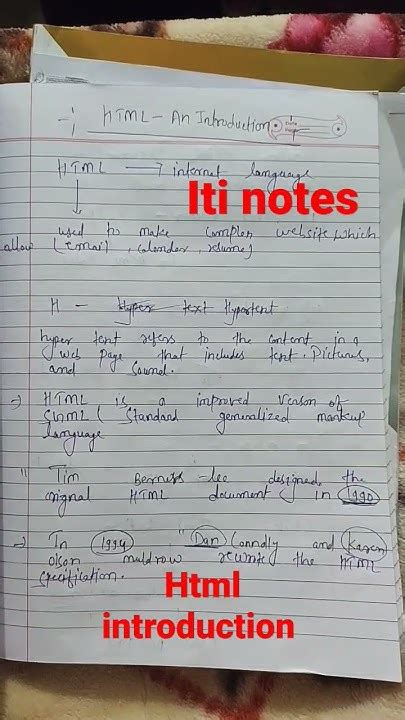 -: HTML - An Introduction
Date
Page
HTML → internet language
Iti notes
used to make complex website, which
allow (email, calender, resume)
H - Hyper text Hypertext
hyper text refers to the content in a
web page that includes text, Pictures,
and Sound.
→ HTML is a improved verson of
SGML ( Standard generalized markup
language
" Tim Berners-lee designed the
original HTML document in 1990
→ In 1994 "Dan Conndly and Karen
olson muldrow rewrite the HTML
specification.
Html
introduction